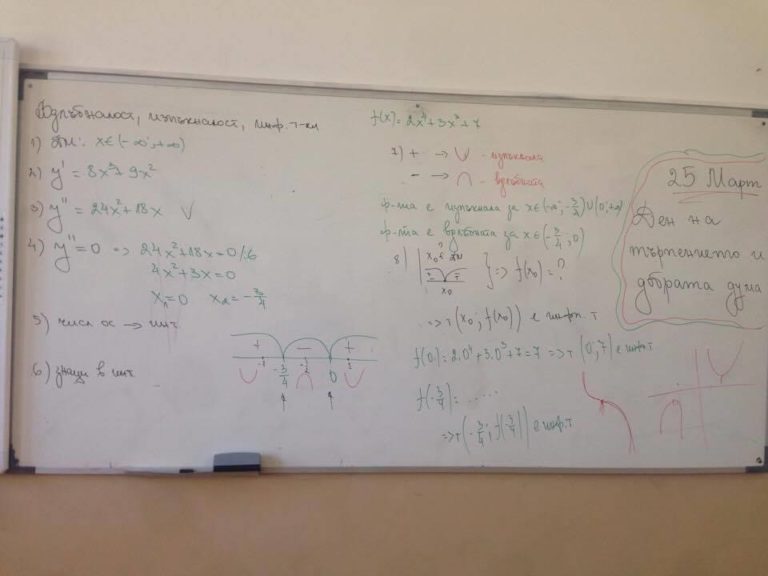 Вдлъбнатост, изпъкналост, инф. т-ки
1) ДМ: x∈(-∞; +∞)
2) y' = 8x³+9x²
3) y'' = 24x²+18x V
4) y''=0 => 24x²+18x=0/:6
4x²+3x=0
x₁=0 x₂=-3/4
5) числ. ос → инт.
6) знаци в инт.
+ - +
-1 -3/4 -1/2 0 1
f(x)=2x⁴+3x³+7
7) + → ∪ - изпъкнала
- → ∩ - вдлъбната
ф-та е изпъкнала за x∈(-∞; -3/4)∪(0; +∞)
ф-та е вдлъбната за x∈(-3/4; 0)
8) x₀ ∈ ДМ
x₀ } => f(x₀) = ?
=> т(x₀; f(x₀)) е инфл. т
f(0)=2.0⁴+3.0³+7=7 => т(0;7) е инф.т
f(-3/4)= .....
=> т(-3/4; f(-3/4)) е инф.т
25 Март
Ден на
търпението и
добрата дума